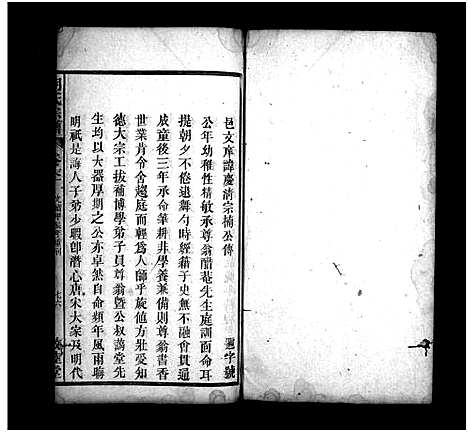 邑文庠諱慶清宗楠公傳
公年幼稚性精敏承尊翁醋菴先生庭訓面命耳
提朝夕不倦逮舞勺時經藉子史無不融會貫通
成童後三年承命筆耕非學養兼備則尊翁書香
世業肯令舍趨庭而輕為人師乎旋値方壯受知
德大宗工拔補博學弟子員尊翁暨公叔藹堂先
生均以大器厚期之公亦卓然自命類年風雨聯
明祇是誨人子弟少暇卽潛心唐宋大家及明代
字號
氏宗譜